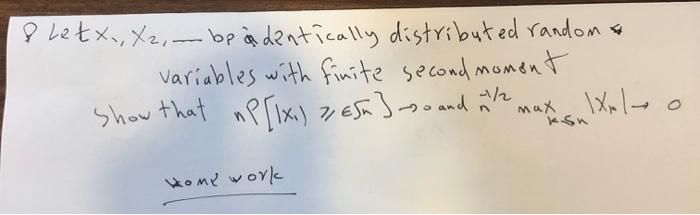 Let x₁, X₂, — be identically distributed random
variables with finite second moment
Show that nP[|X₁| ≥ ϵ√n] → 0 and n^(-1/2) max_{k≤n} |Xₖ| → 0
Home work